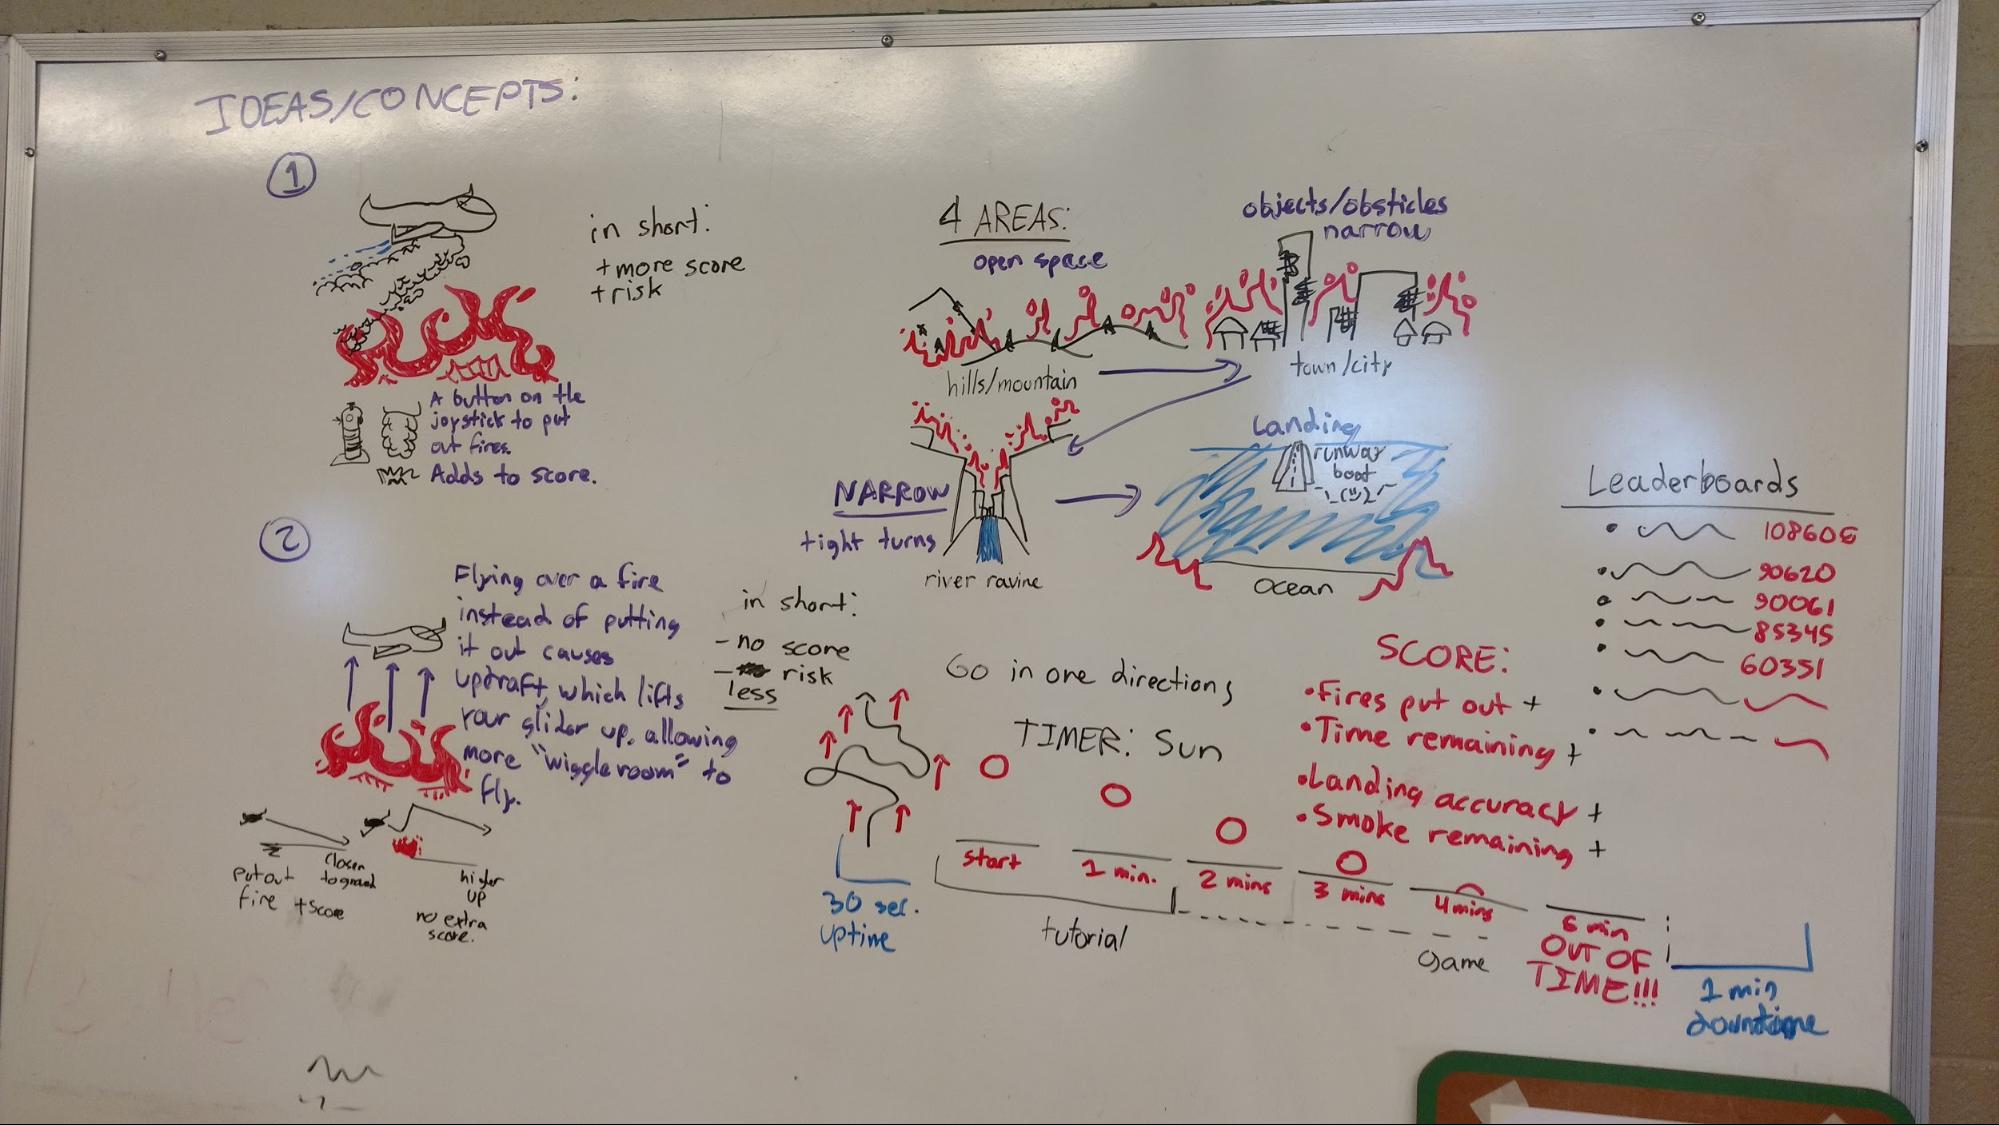 IDEAS/CONCEPTS:
1
in short:
+ more score
+ risk
A button on the
joystick to put
out fires.
Adds to score.
2
Flying over a fire
instead of putting
it out causes
updraft, which lifts
your glider up, allowing
more "wiggle room" to
fly.
in short:
- no score
- risk
less
put out
fire + score
closer
to ground
higher
up
no extra
score.
4 AREAS:
open space
hills/mountain
objects/obsticles
narrow
town/city
NARROW
tight turns
river ravine
Landing
runway
boat
ocean
Go in one directions
TIMER: Sun
start
1 min.
2 mins
3 mins
4 mins
OUT OF
TIME!!!
30 sec.
uptime
tutorial
game
1 min
downtime
SCORE:
• Fires put out +
• Time remaining +
• Landing accuracy +
• Smoke remaining +
Leaderboards
90620
90061
85345
60351